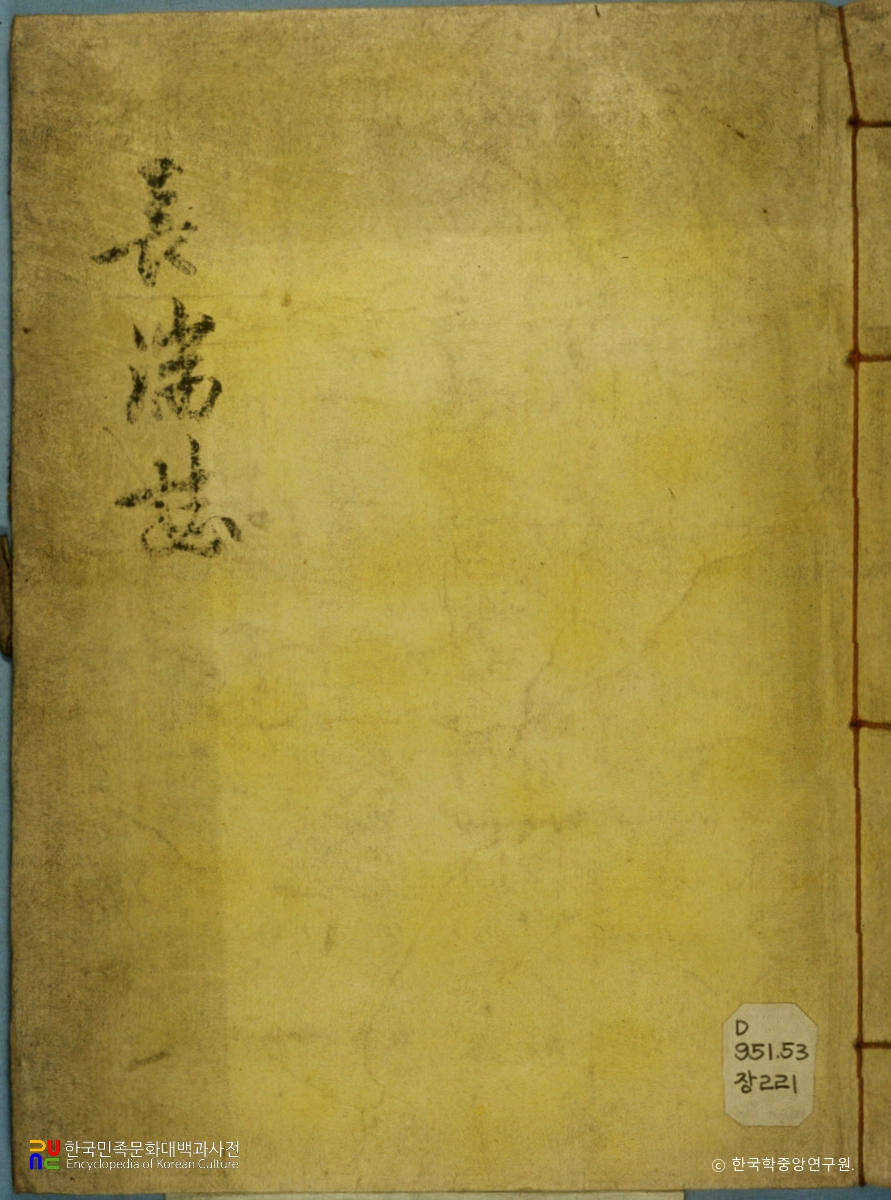 長湍誌
D
951.53
장221
한국민족문화대백과사전
Encyclopedia of Korean Culture
ⓒ 한국학중앙연구원.